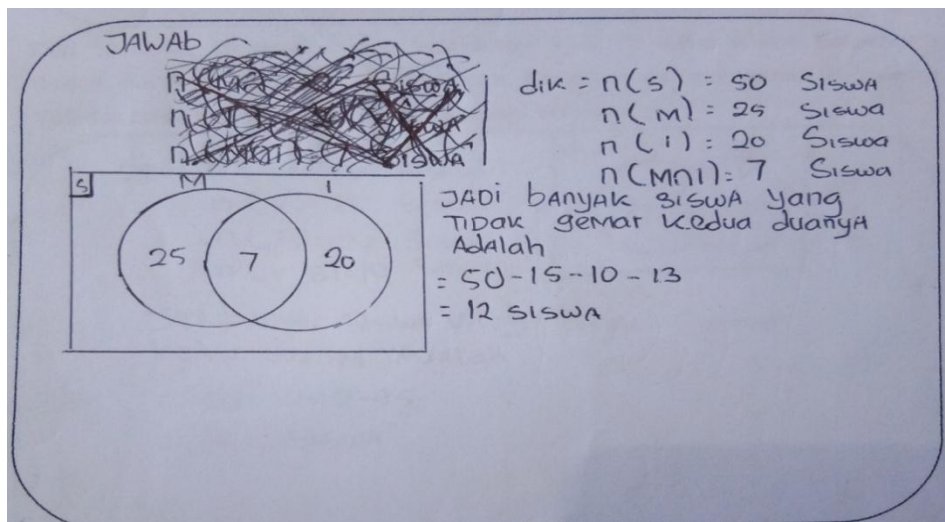 JAWAb
dik = n(S) = 50 SISWA
n(M) = 25 Siswa
n(i) = 20 Siswa
n(M∩I) = 7 Siswa
S
M I
25 7 20
JADi bANYAK SISWA yang
TiDAK gemar Kedua duanyA
AdAlAh
= 50 - 15 - 10 - 13
= 12 SISWA